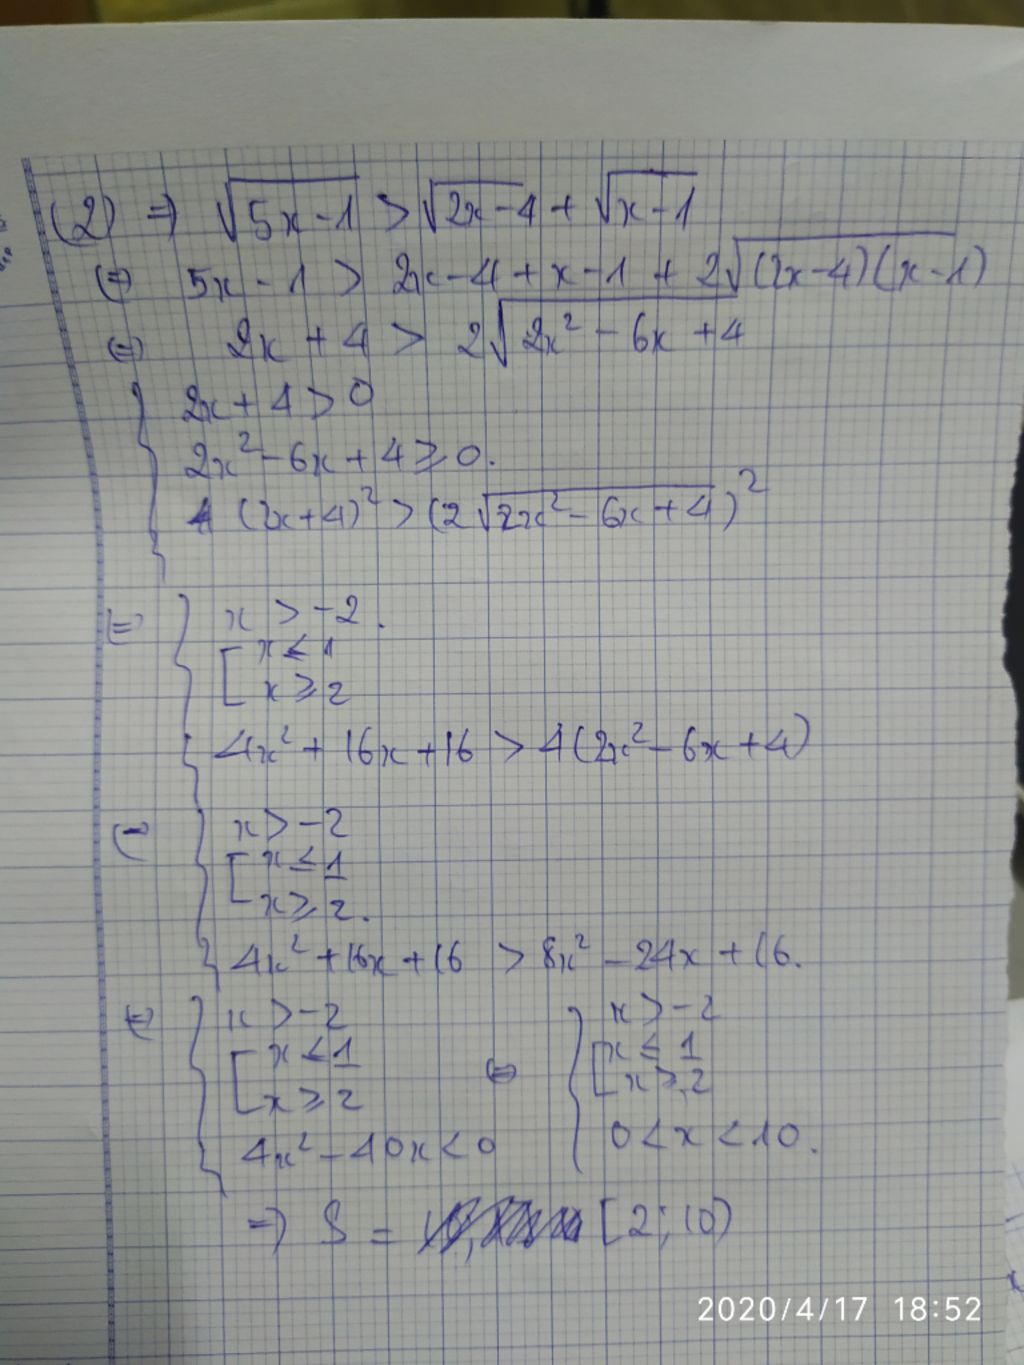 (2) => √(5x-1) > √(2x-4) + √(x-1)
(=) 5x - 1 > 2x-4 + x-1 + 2√((2x-4)(x-1))
(=) 2x + 4 > 2√(2x² - 6x + 4)
{ 2x + 4 > 0
2x² - 6x + 4 ≥ 0.
(2x+4)² > (2√(2x² - 6x + 4))²
(=) { x > -2.
[ x ≤ 1
x ≥ 2
4x² + 16x + 16 > 4(2x² - 6x + 4)
(=) { x > -2
[ x ≤ 1
x ≥ 2.
4x² + 16x + 16 > 8x² - 24x + 16.
(=) { x > -2 (=) { x > -2
[ x ≤ 1 [ x ≤ 1
x ≥ 2 x ≥ 2
4x² - 40x < 0 0 < x < 10.
=) S = [2; 10)
2020/4/17 18:52